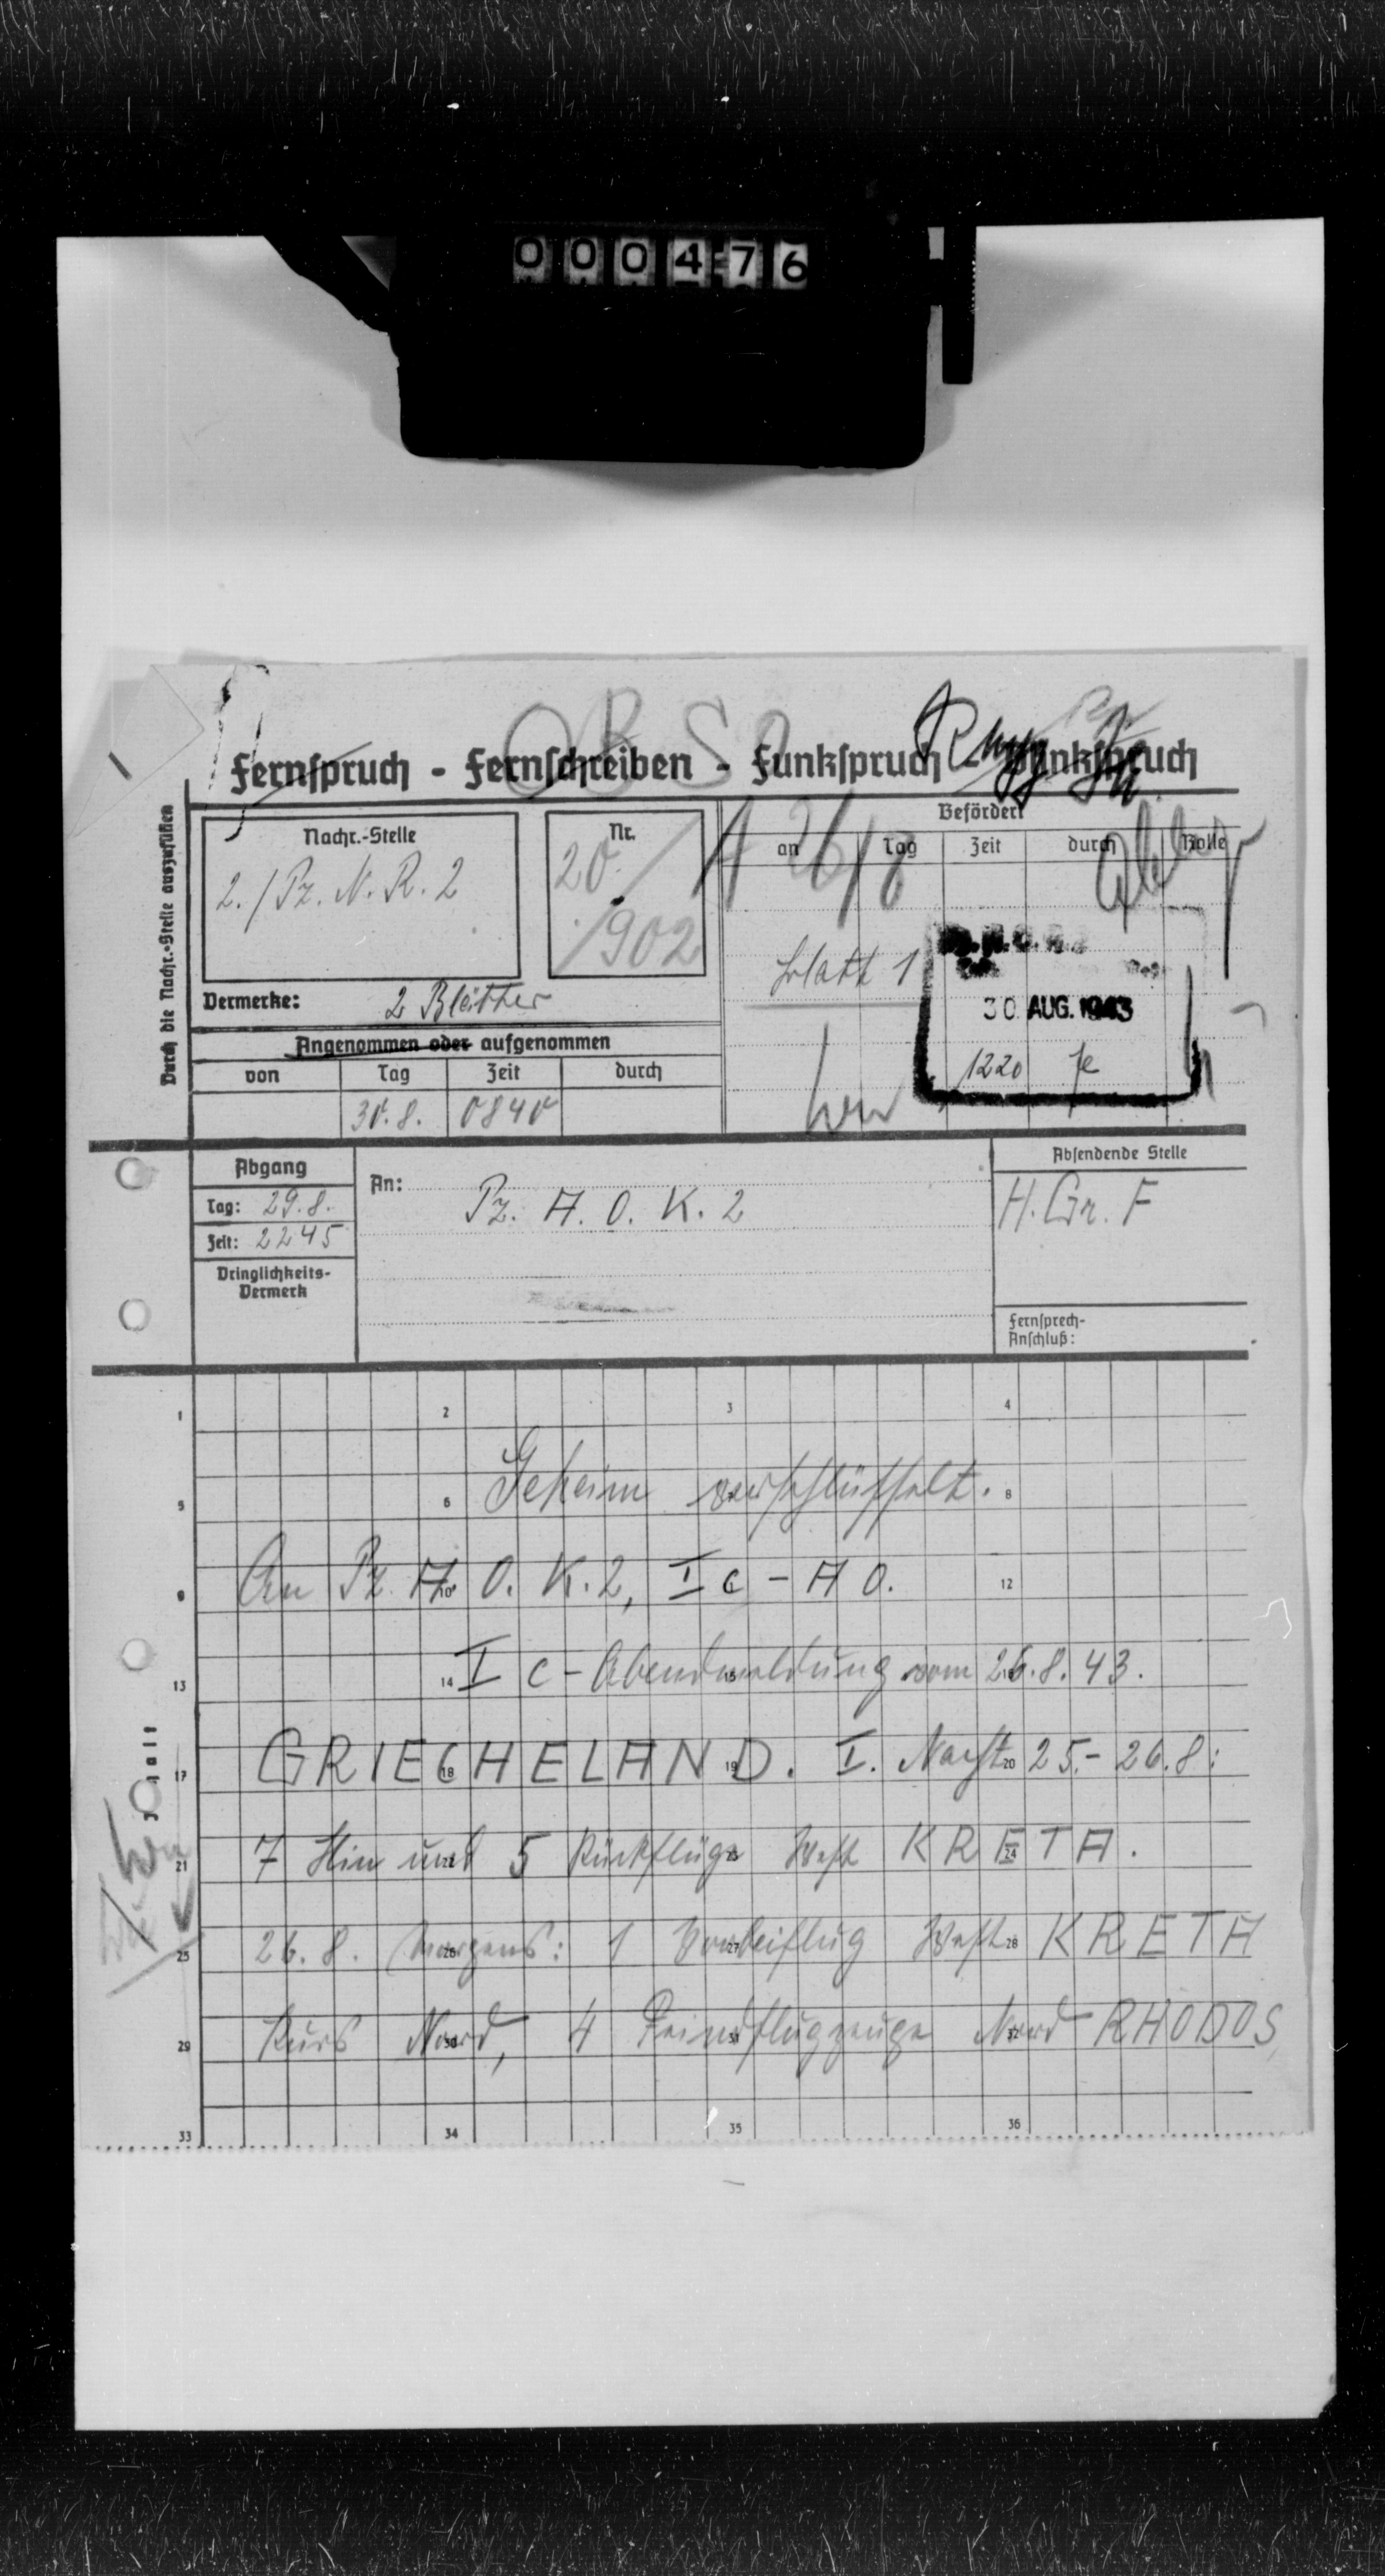 000476
OB SO
Fernspruch - Fernschreiben - Funkspruch - Blinkspruch
Durch die Nachr.-Stelle auszufüllen
Nachr.-Stelle
2./Pz. N. R. 2
Nr.
20.
/902
Befördert
an Tag Zeit durch Rolle
26/8
Blatt 1
30. AUG. 1943
1220
Vermerke: 2 Blätter
Angenommen oder aufgenommen
von Tag Zeit durch
30.8. 0840
Abgang
Tag: 29.8.
Zeit: 2245
Dringlichkeits-
Vermerk
An: Pz. A. O. K. 2
Absendende Stelle
H. Gr. F
Fernsprech-
Anschluß:
1 2 3 4
Geheim verschlüsselt.
5 6 8
An Pz A. O. K. 2, I c - A O.
9 10 12
I c - Abendmeldung vom 26.8.43.
13 14 15
GRIECHELAND. I. Nacht 25.- 26.8:
17 18 19 20
7 Hin und 5 Rückflüge West KRETA.
21 24
26.8. Morgens: 1 Vorbeiflug West KRETA
25 26 27 28
Kurs Nord, 4 Feindflugzeuge Nord RHODOS,
29 30 31 32
33 34 35 36
Inhalt